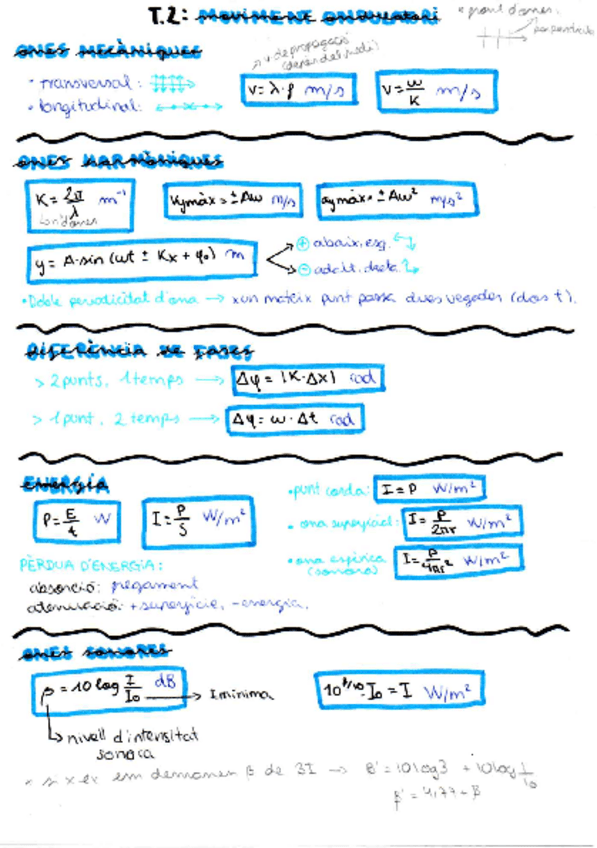 T.2: MOVIMENT ONDULATORI
* front d'ones.
perpendicular
ONES MECÀNIQUES
v de propagació
(depen del medi)
· transversal:
· longitudinal:
v = λ · f m/s
v = w/K m/s
ONES HARMÒNIQUES
K = 2π/λ m⁻¹
Vymàx = ± Aw m/s
aymàx = ± Aw² m/s²
y = A · sin (wt ± Kx + φ₀) m
⊕ abaix, esq.
⊖ adalt, dreta.
• Doble periodicitat d'ona → x un mateix punt passa dues vegades (dos t).
DIFERÈNCIA DE FASES
> 2 punts, 1 temps → Δφ = |K · Δx| rad
> 1 punt, 2 temps → Δφ = w · Δt rad
ENERGIA
P = E/t W
I = P/S W/m²
• punt corda: I = P W/m²
• ona superficial: I = P/2πr W/m²
• ona esfèrica (sonora) I = P/4πr² W/m²
PÈRDUA D'ENERGIA:
absorció: fregament
atenuació: + superfície, - energia.
ONES SONORES
β = 10 log I/I₀ dB
→ I mínima
10^β/10 · I₀ = I W/m²
nivell d'intensitat
sonora
* si x ex em demanen β de 3I → β' = 10 log 3 + 10 log I/I₀
β' = 4,77 + β